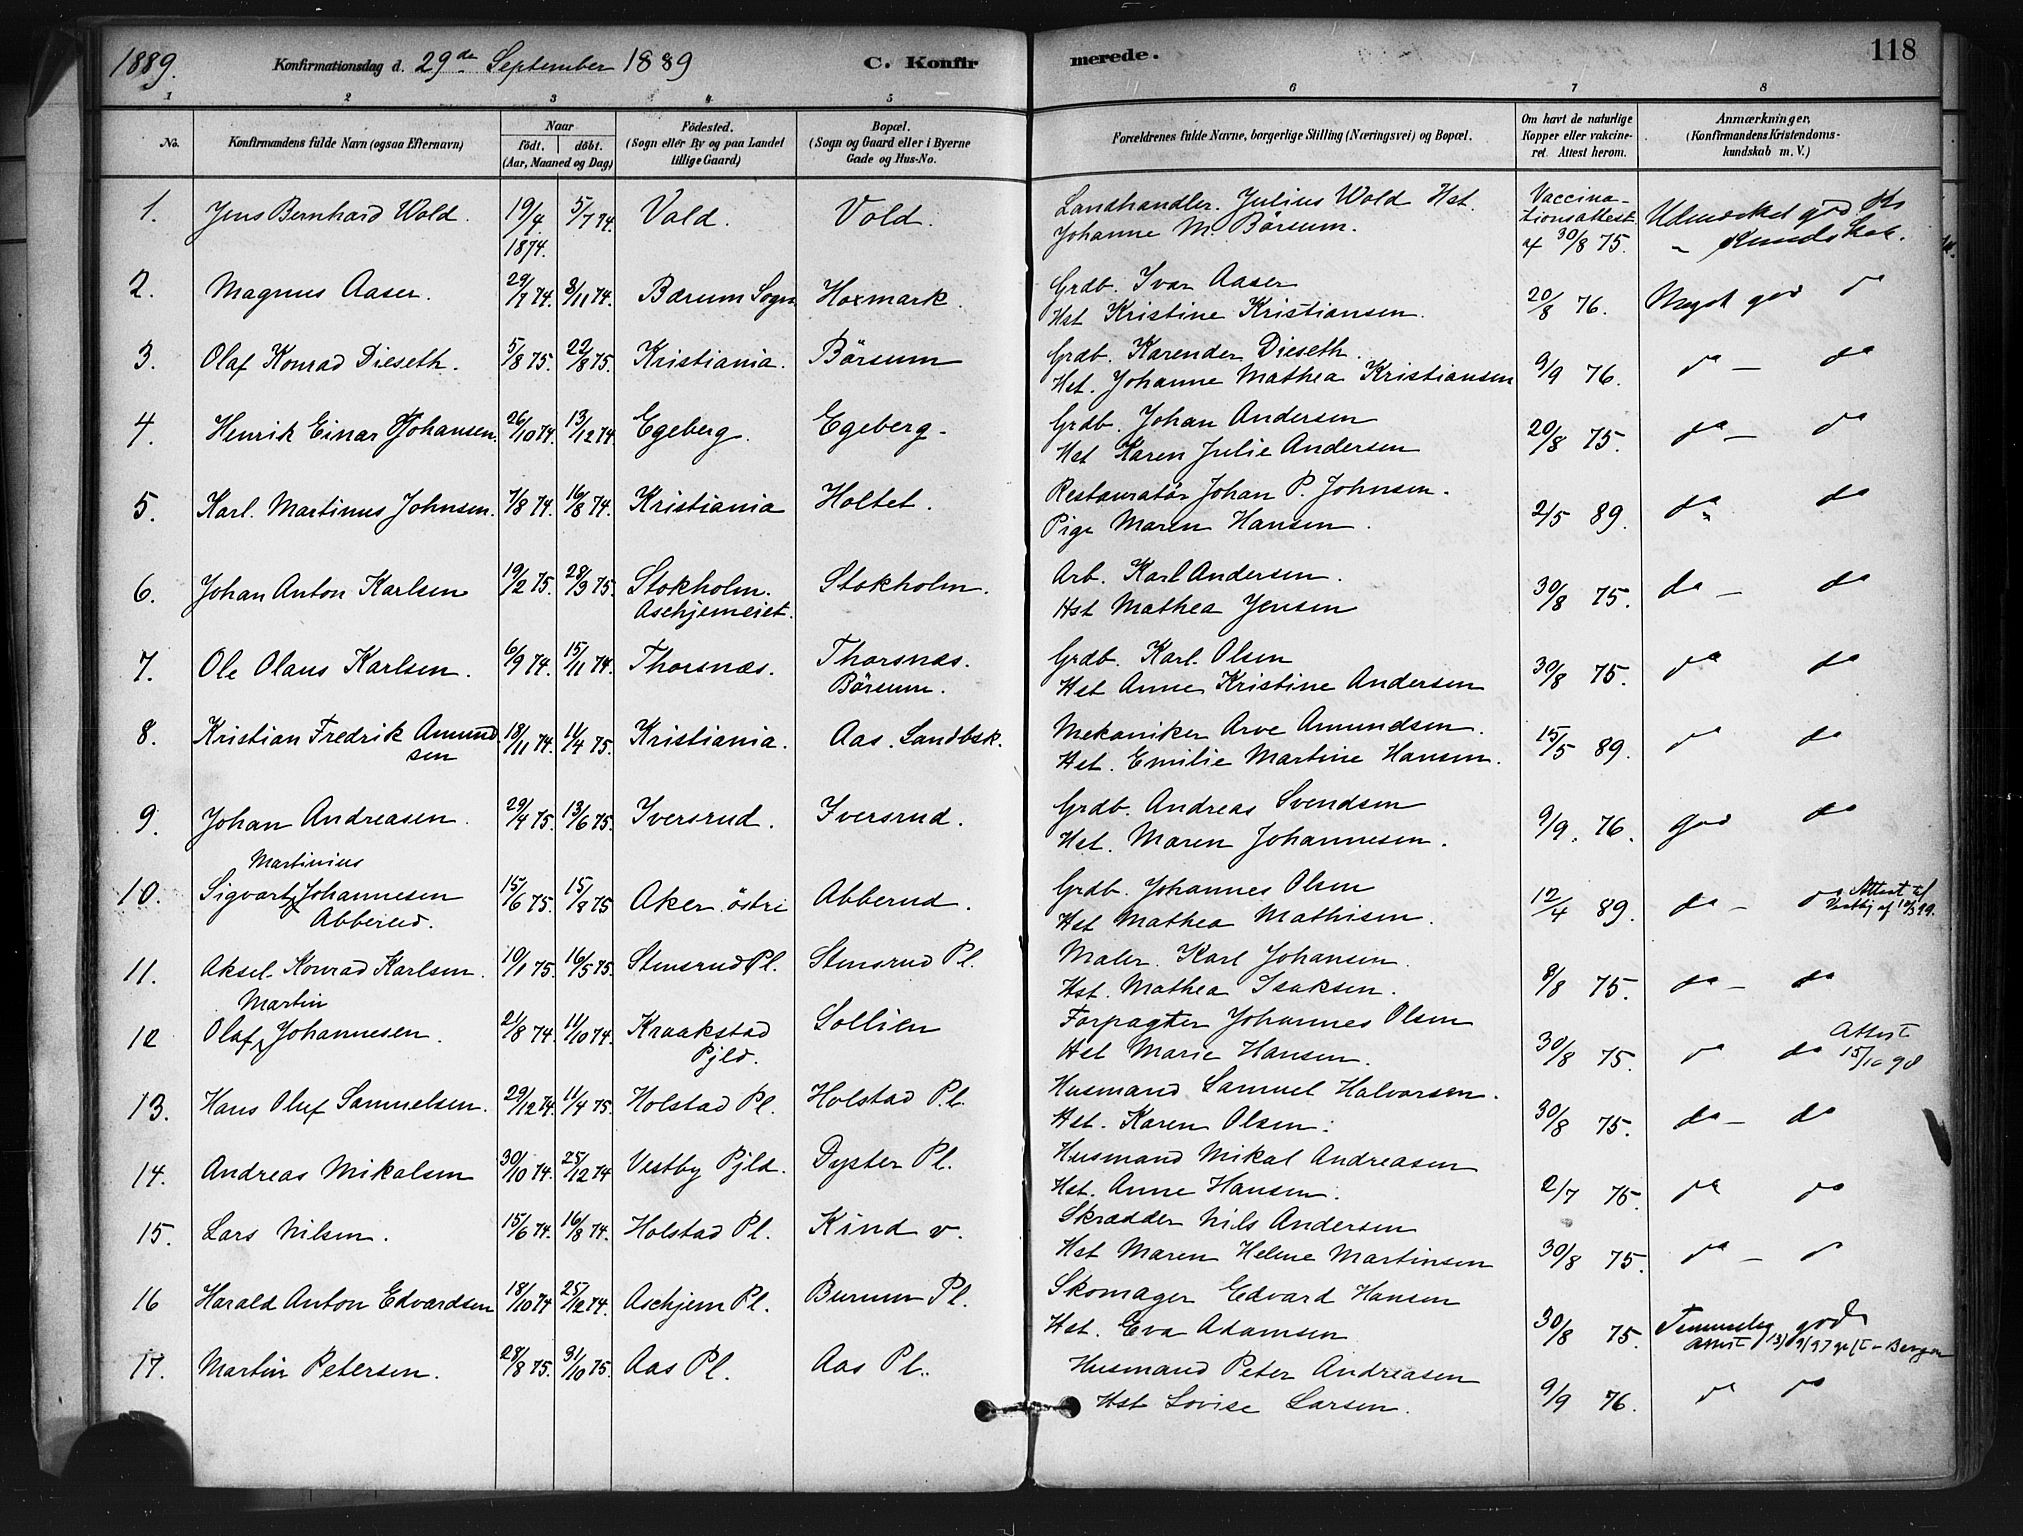 1889. Konfirmationsdag d. 29de September 1889 C. Konfirmerede. 118
1 2 3 4 5 6 7 8
No. Konfirmandens fulde Navn (ogsaa Efternavn) Naar født. døbt. (Aar, Maaned og Dag) Fødested. (Sogn eller By og paa Landet tillige Gaard) Bopæl. (Sogn og Gaard eller i Byerne Gade og Hus-No. Forældrenes fulde Navne, borgerlige Stilling (Næringsvei) og Bopæl. Om havt de naturlige Kopper eller vakcineret. Attest herom. Anmærkninger, (Konfirmandens Kristendomskundskab m. V.)
1. Jens Bernhard Wold. 19/4 1874. 5/7 74. Vold. Vold. Landhandler. Julius Wold Hst.
Johanne M. Børsum. Vaccinationsattest af 30/8 75. Udmærket god Kundskab.
2. Magnus Aaser. 29/7 74. 8/11 74. Bærum Sogn Hoxmark. Grdb. Ivar Aaser
Hst Kristine Kristiansen. 20/8 76. Meget god do
3. Olaf Konrad Dieseth. 5/8 75. 22/8 75. Kristiania. Børsum Grdb. Karender Dieseth.
Hst. Johanne Mathea Kristiansen 9/9 76. do – do
4. Henrik Einar Johansen. 26/10 74. 13/12 74 Egeberg. Egeberg- Grdb. Johan Andersen
Hst Karen Julie Andersen 20/8 75. do – do
5. Karl. Martinus Johnsen. 7/8 74. 16/8 74. Kristiania Holtet. Restauratør Johan P. Johnsen.
Pige Maren Hansen. 2/5 89. do do
6. Johan Anton Karlsen 19/2 75. 28/3 75. Stokholm. Stokholm. Arb. Karl Andersen.
Aschjemeiet. Hst Mathea Jensen 30/8 75. do – do
7. Ole Olaus Karlsen. 6/9 74. 15/11 74. Thorsnæs. Thorsnæs. Grdb. Karl. Olsen
Børsum. Hst Anne Kristine Andersen 30/8 75. do do
8. Kristian Fredrik Amund- 18/11 74. 11/4 75. Kristiania. Aas. Landbsk. Mekaniker Arve Amundsen.
sen Hst. Emilie Martine Hansen. 15/5 89. do do
9. Johan Andreasen. 29/4 75. 13/6 75. Iversrud. Iversrud. Grdb. Andreas Svendsen
Hst. Maren Johannesen. 9/9. 76. god do
Martinius
10. Sigvart Johannesen 15/6 75. 15/8 75 Aker. østri Abberud. Grdb. Johannes Olsen
Abberud. Hst Mathea Mathisen. 12/4 89. do – do Attest til
11. Aksel. Konrad Karlsen. 10/1 75. 16/5 75. Stensrud Pl. Stensrud Pl. Maler. Karl Johansen.
Hst. Mathea Isaksen. 8/8 75. do – do
Martin
12 Olaf Johannesen. 21/8 74. 11/10 74. Kraakstad Sollien Forpagter Johannes Olsen
Pjld. Hst Marie Hansen. 30/8 75. do do Attest 15/10 98
13. Hans Oluf Samuelsen. 29/12 74. 11/4 75. Holstad Pl. Holstad P.l. Husmand Samuel Halvorsen.
Hst. Karen Olsen. 30/8 75. do – do
14. Andreas Mikalsen 30/10 74. 25/12 74 Vestby Pjld. Dyster Pl. Husmand Mikal Andreasen
Hst. Anne Hansen. 2/7 75. do do
15. Lars Nilsen. 15/6 74. 16/8 74. Holstad Pl. Kind v. Skrædder Nils Andersen
Hst Maren Helene Martinsen 30/8 75. do – do
16 Harald Anton Edvardsen 18/10 74 25/12 74. Aschjem Pl. Burum Pl. Skomager Edvard Hansen
Hst. Eva Adamsen 30/8 75. Temmelig god
Attest 13/9/97 Bergen
17. Martin Petersen. 28/8 75. 31/10 75. Aas Pl. Aas Pl. Husmand Peter Andreasen
Hst Lovise Larsen. 9/9 76. do do